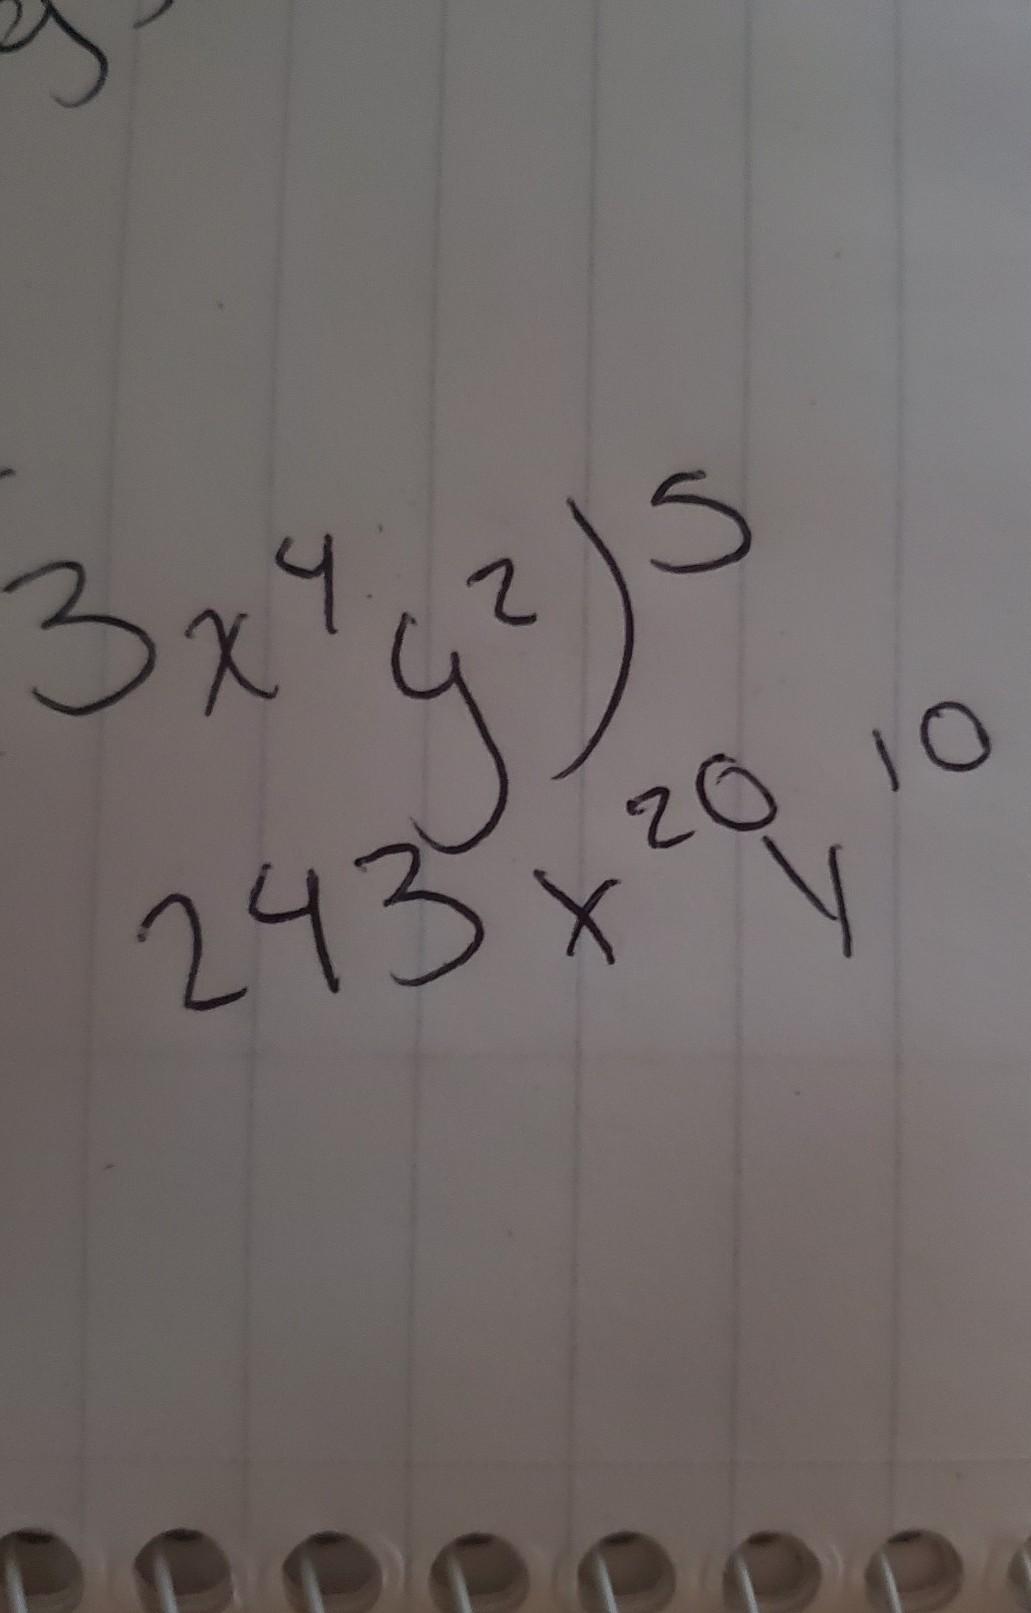 3x⁴y²)⁵
243x²⁰y¹⁰